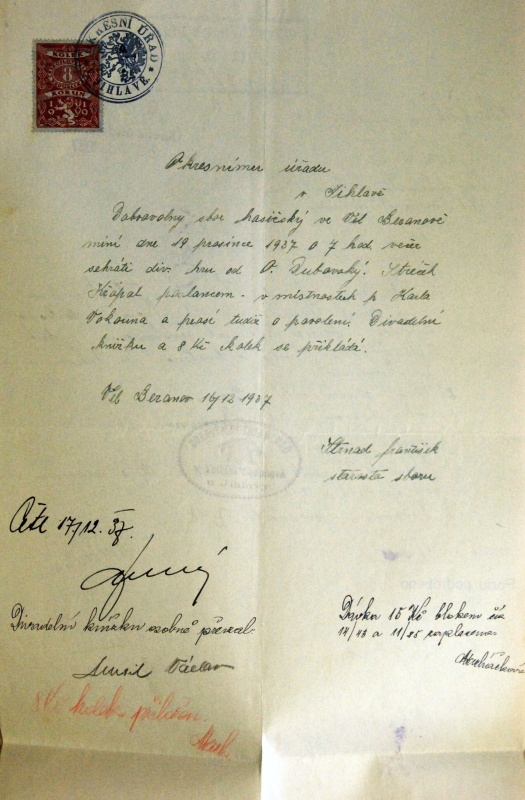 OKRESNÍ ÚŘAD
JIHLAVĚ
KOLEK
8
KORUN
1919
Okresnímu úřadu
v Jihlavě
Dobrovolný sbor hasičský ve Vel Beranově
míní dne 19 prosince 1937 o 7 hod večer
sehráti div. hru od O. Dubovský: Streček
Křópal poslancem - v místnostech p. Karla
Vokouna a prosí tudíž o povolení Divadelní
knížku a 8 Kč kolek se přikládá.
Vel Beranov 16/12 1937
Strnad František
starosta sboru
17/12. 37.
Divadelní knížku osobně převzal
Václav
Dávka 15 Kč blokem čís
14/43 a 11/25 zaplacena
8 Kč kolek přiložen.